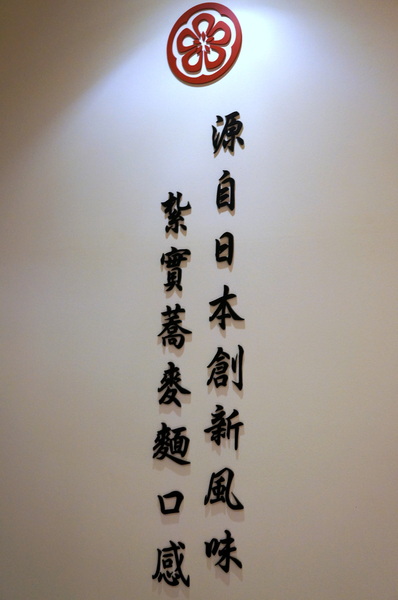 源自日本創新風味
紮實蕎麥麵口感